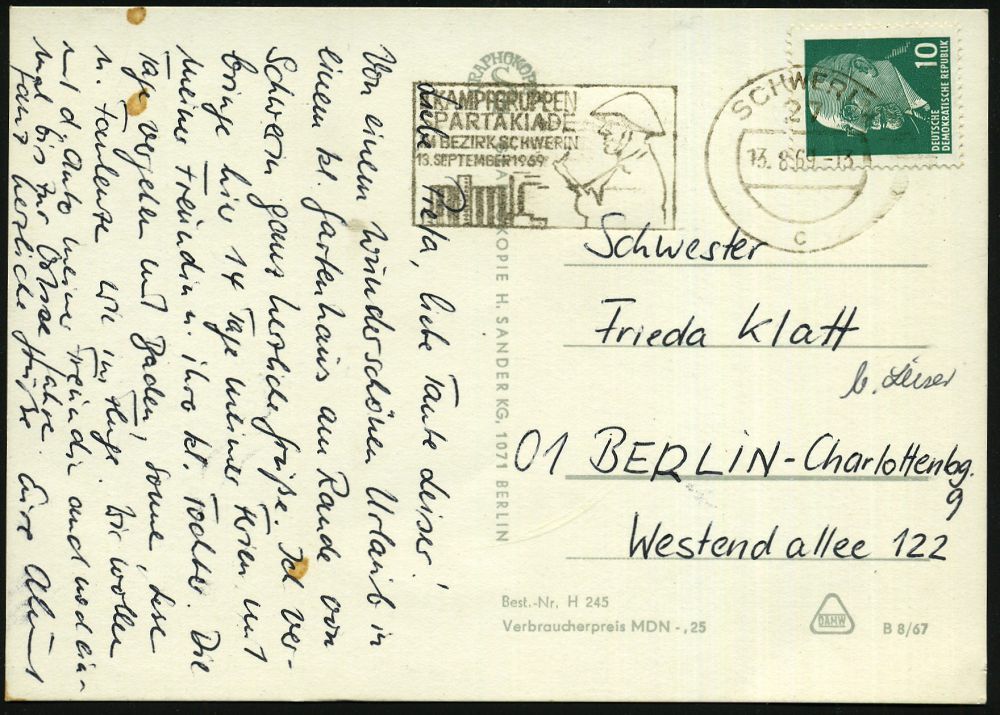 Liebe Frieda, liebe Tante Leiser!
Von einem wunderschönen Urlaub in
einem kl. Gartenhaus am Rande von
Schwerin ganz herzliche Grüße. Ich ver-
bringe hier 14 Tage meiner Ferien mit
meine Freundin u. ihre kl. Tochter. Die
Tage vergehen mit Baden, Sonne, Lesen
u. Faulenzen wie im Fluge. Wir wollen
mit d. Auto meiner Freundin auch noch ein-
mal bis zur Ostsee fahren.
Ganz herzliche Grüße Eure
KAMPFGRUPPEN
SPARTAKIADE
IM BEZIRK SCHWERIN
13. SEPTEMBER 1969
SCHWERIN
13.8.69-13
c
10
DEUTSCHE
DEMOKRATISCHE REPUBLIK
KOPIE H. SANDER KG, 1071 BERLIN
Schwester
Frieda Klatt
b. Leiser
01 BERLIN-Charlottenbg.
9
Westendallee 122
Best.-Nr. H 245
Verbraucherpreis MDN -,25
DAHW
B 8/67